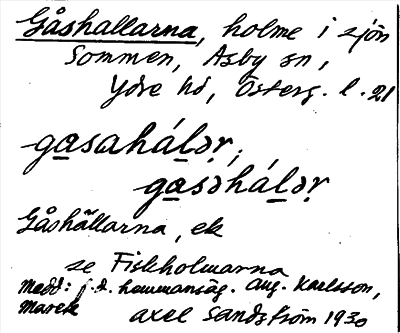 Gåshallarna, holme i sjön
Sommen, Asby sn,
Ydre hd, Österg. l. 21
gasahálǝṛ,
gasǝhálǝṛ
Gåshällarna, ek
se Fiskholmarna
Medd: f.d. hemmansäg. Aug. Karlsson,
Marek
Axel Sandström 1930